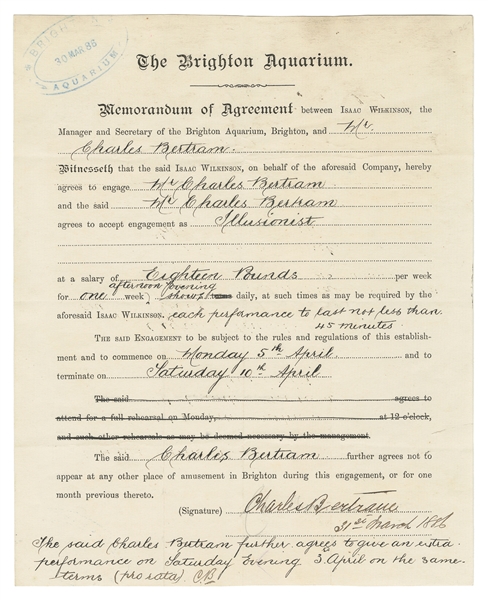 BRIGHTON
30 MAR 86
AQUARIUM
The Brighton Aquarium.
Memorandum of Agreement between ISAAC WILKINSON, the
Manager and Secretary of the Brighton Aquarium, Brighton, and Mr
Charles Bertram.
Witnesseth that the said ISAAC WILKINSON, on behalf of the aforesaid Company, hereby
agrees to engage Mr Charles Bertram
and the said Mr Charles Bertram
agrees to accept engagement as Illusionist
at a salary of Eighteen Pounds per week
afternoon evening
for one week, shows daily, at such times as may be required by the
aforesaid ISAAC WILKINSON. each performance to last not less than
45 minutes
THE SAID ENGAGEMENT to be subject to the rules and regulations of this establish-
ment and to commence on Monday 5th April and to
terminate on Saturday 10th April
The said agrees to
attend for a full rehearsal on Monday, at 12 o'clock,
and such other rehearsals as may be deemed necessary by the management.
The said Charles Bertram further agrees not to
appear at any other place of amusement in Brighton during this engagement, or for one
month previous thereto.
(Signature) Charles Bertram
31st March 1886
The said Charles Bertram further agrees to give an extra
performance on Saturday Evening 3d April on the same
terms (pro rata) C.B